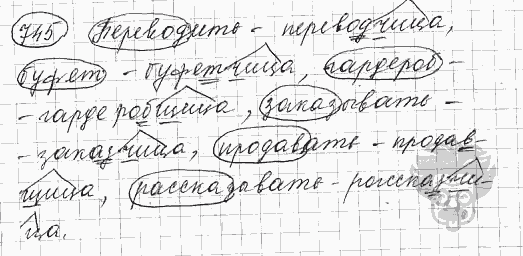 745 Переводить - переводчица,
буфет - буфетчица, гардероб -
- гардеробщица, заказывать -
- заказчица, продавать - продав
щица, рассказывать - рассказчи-
ца.